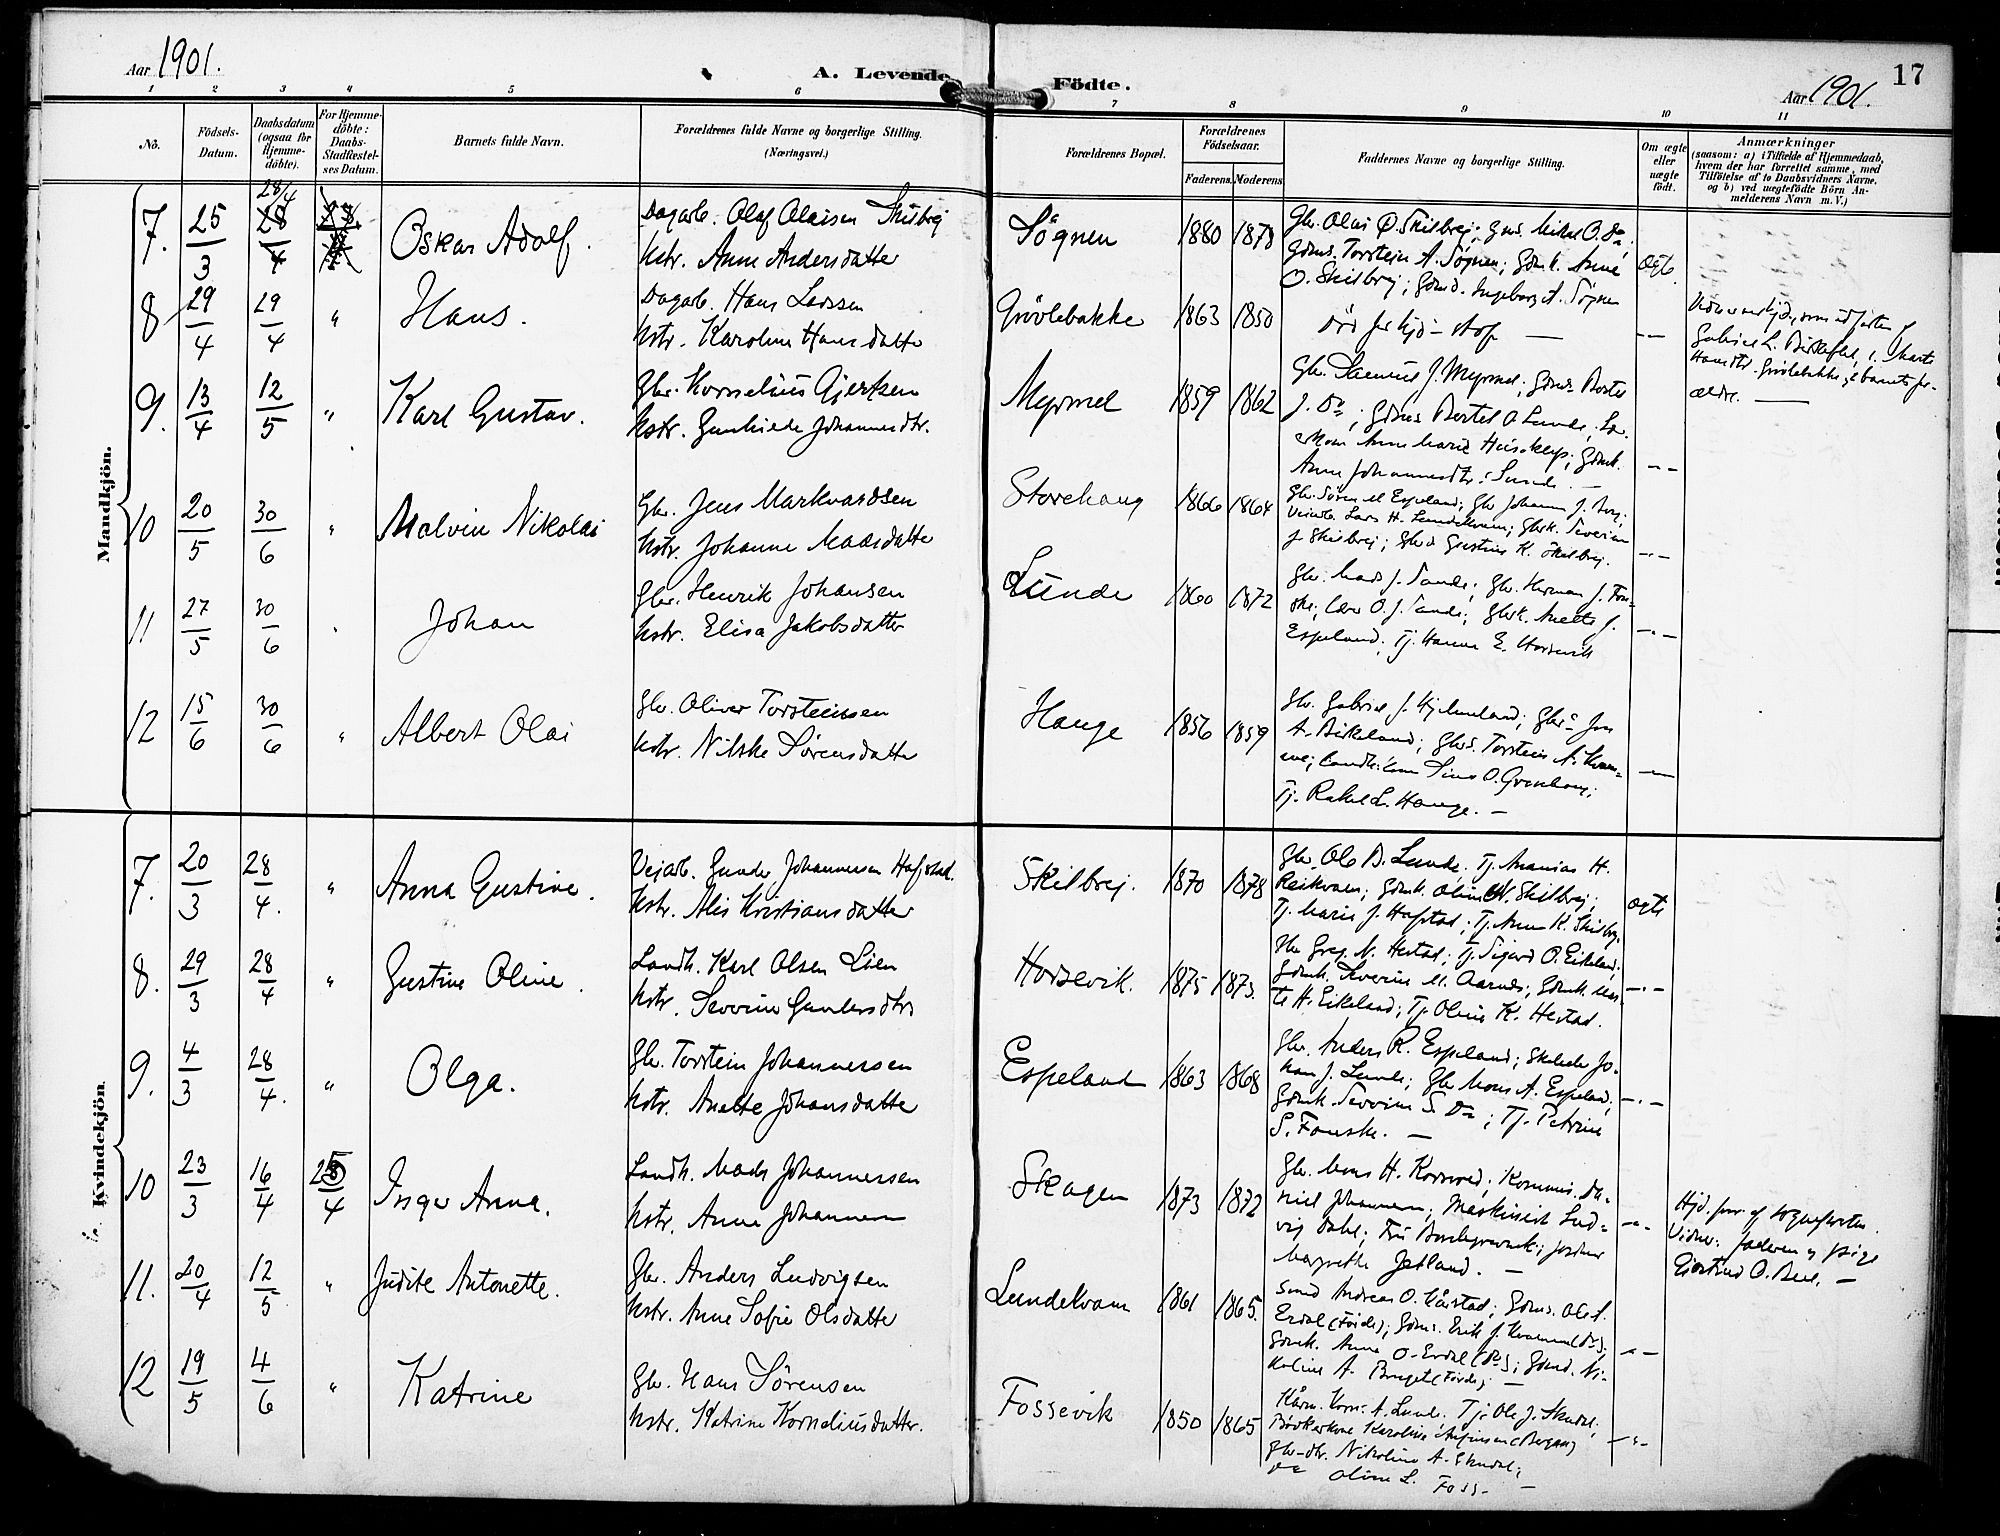 Aar 1901.
A. Levende Födte.
17
Aar 1901.
1 2 3 4 5 6 7 8 9 10 11
No.
Födsels-Datum.
Daabsdatum (ogsaa for Hjemme-döbte).
For Hjemme-döbte: Daabs-Stadfæstel-ses Datum.
Barnets fulde Navn.
Forældrenes fulde Navne og borgerlige Stilling.
(Næringsvei.)
Forældrenes Bopæl.
Forældrenes Födselsaar.
Faderens. Moderens.
Faddernes Navne og borgerlige Stilling.
Om ægte eller uægte födt.
Anmærkninger
(saasom: a) i Tilfælde af Hjemmedaab,
hvem der har forrettet samme, med
Tilföielse af to Daabsvidners Navne,
og b) ved uægtefödte Börn An-
melderens Navn m. V.)
Mandkjön.
7. 25/3 28/4 Oskar Adolf.
Dagarb. Olaf Olaisen Skilbrej
Kstr. Anne Andersdatter
Søgnen 1880 1878
Gbr. Olai O. Skilbrej;
Gdms. Torstein A. Søgnen; Gdmk. Anne
O. Skilbrej; Gdmd. Ingeborg A. Søgnen
ægte.
8 29/4 29/4 " Hans.
Dagarb. Hans Larsen
Kstr. Karoline Hansdatter
Grövlebakke 1863 1850
9. 13/4 12/5 " Karl Gustav.
Gbr. Kornelius Gjertsen
Kstr. Gunhilde Johannesdtr.
Myrmel 1859 1862
Gbr. Samuel J. Myrmel; Gdms. Bertel O Lunde;
Anne Johannesdtr. Lunde. -
10 20/5 30/6 " Malvin Nikolai
Gbr. Jens Markvardsen
Kstr. Johanne Madsdatter
Storehaug 1866 1864
Gbr. Søren M Espeland; Gbr Johannes J. Berg;
Veiarb. Lars H. Lundekvam; Gbrk. Severine
J Skilbrej; Gbrd Gustine K. Skilbrej.
11 27/5 30/6 Johan
Gbr. Henrik Johansen
Kstr. Elisa Jakobsdatter
Lunde 1860 1872
Gbr. Mads J. Sande; Gbr. Herman J. Fon-
ske; Lærer O. J. Sande; Gbrk. Anette J.
Espeland; Tj. Hanna E. Horsevik
12 15/6 30/6 " Albert Olai
Gbr. Oliver Torsteinsen
Kstr. Nilske Sørensdatter
Hauge 1856 1859
Gbr. Gabriel J. Hjelmeland; Gbrs Jens
A. Birkeland; Gbrs. Torstein A. Kvam-
me; Landh.kone Sina O. Grønhaug;
Tj. Rakel L. Hauge. -
Kvindekjön.
7. 20/3 28/4. " Anna Gustine.
Vejarb. Gunder Johannesen Hafstad.
Kstr. Alis Kristiansdatter
Skilbrej. 1870 1878
Gbr. Ole B. Lunde. Tj. Ananias H.
Reikvam; Gdmk. Oline M. Skilbrej;
Tj. Marie J. Hafstad; Tj. Anna K. Skilbrej.
ægte
8. 29/3 28/4 " Gustine Oline.
Landh. Karl Olsen Lien
Kstr. Severine Gundersdtr
Horsevik. 1875 1873.
Gbr Greg. N. Hestad; Tj. Sigurd O. Eikeland.
Gdmk. Severine M. Aarnes; Gdmk. Mar-
te H. Eikeland; Tj. Oline K. Hestad.
9. 4/3 28/4. " Olga.
Gbr. Torstein Johannessen
Kstr. Anette Johansdatter
Espeland 1863 1868
Gbr. Anders R. Espeland; Jo-
han J. Lunde; Gbr Mons A. Espeland;
Gdmk. Severine S. Do; Tj. Petrine
S. Fonske. -
10 23/3 16/4 25/4 Inger Anna.
Landh. Mads Johannessen
Kstr. Anna Johannesen
Skagen 1873 1872
Gbr. Mons H. Kornved; Kommis. Da-
niel Johannesen; Maskinist Lud-
vig Dahl; Fru; Jordmor
Margrethe Jetland. -
Hjd. forr. af sognepresten.
Vidner: faderen og pige
Gjertrud O. -
11. 20/4 12/5 " Judite Antonette.
Gbr. Anders Ludvigsen
Kstr. Anne Sofie Olsdatter
Lundekvam 1861 1865.
Smed Andreas O. Kårstad; Gdms. Ole A.
Erdal (Förde); Gdms. Erik J. Kvamme (Do);
Gdmk. Anna O. Erdal (Do); Gdmd. Ni-
koline A. Bruget (Förde) -
12 19/5 4/6 " Katrine
Gbr. Hans Sørensen
Kstr. Katrine Korneliusdatter.
Fossevik 1850 1865
Kårm. Korn. A. Lunde; Tj. Ole J. Skudal;
Bødkerkone Karoline Anfinsen (Bergen)
Gbr-dtr. Nikoline A. Skudal;
Do Oline L. Foss -